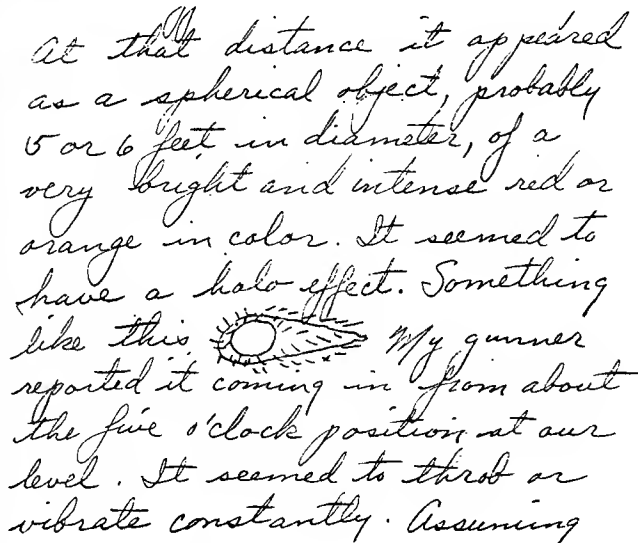 At that distance it appeared
as a spherical object, probably
5 or 6 feet in diameter, of a
very bright and intense red or
orange in color. It seemed to
have a halo effect. Something
like this My gunner
reported it coming in from about
the five o'clock position at our
level. It seemed to throb or
vibrate constantly. Assuming